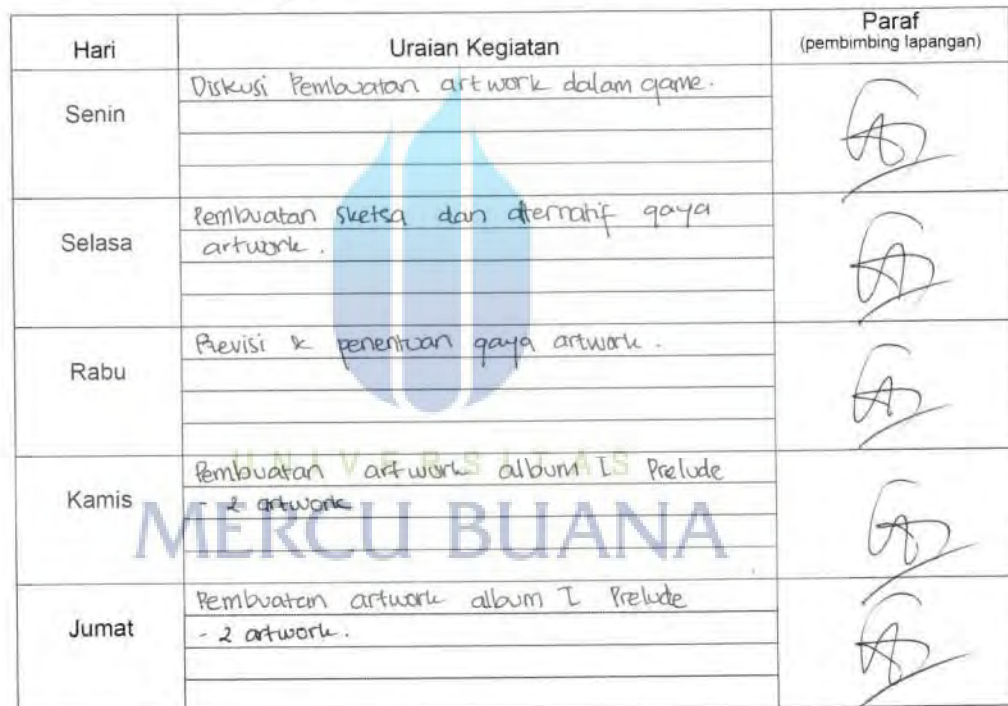 Hari Uraian Kegiatan Paraf
(pembimbing lapangan)
Senin
Diskusi Pembuatan artwork dalam game.
Selasa
Pembuatan sketsa dan alternatif gaya
artwork.
Rabu
Revisi & penentuan gaya artwork.
UNIVERSITAS
MERCU BUANA
Kamis
Pembuatan artwork album I Prelude
- 2 artwork
Jumat
Pembuatan artwork album I Prelude
- 2 artwork.